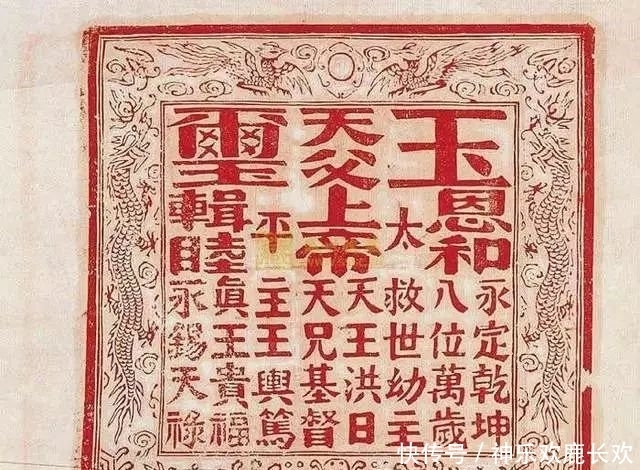 玉
天父上帝
璽
恩和
太
平
輯睦
永定乾坤
八位萬歲
救世幼主
天王洪日
天兄基督
主王輿篤
眞王貴福
永錫天祿
快传号／神乐欢鹿长欢